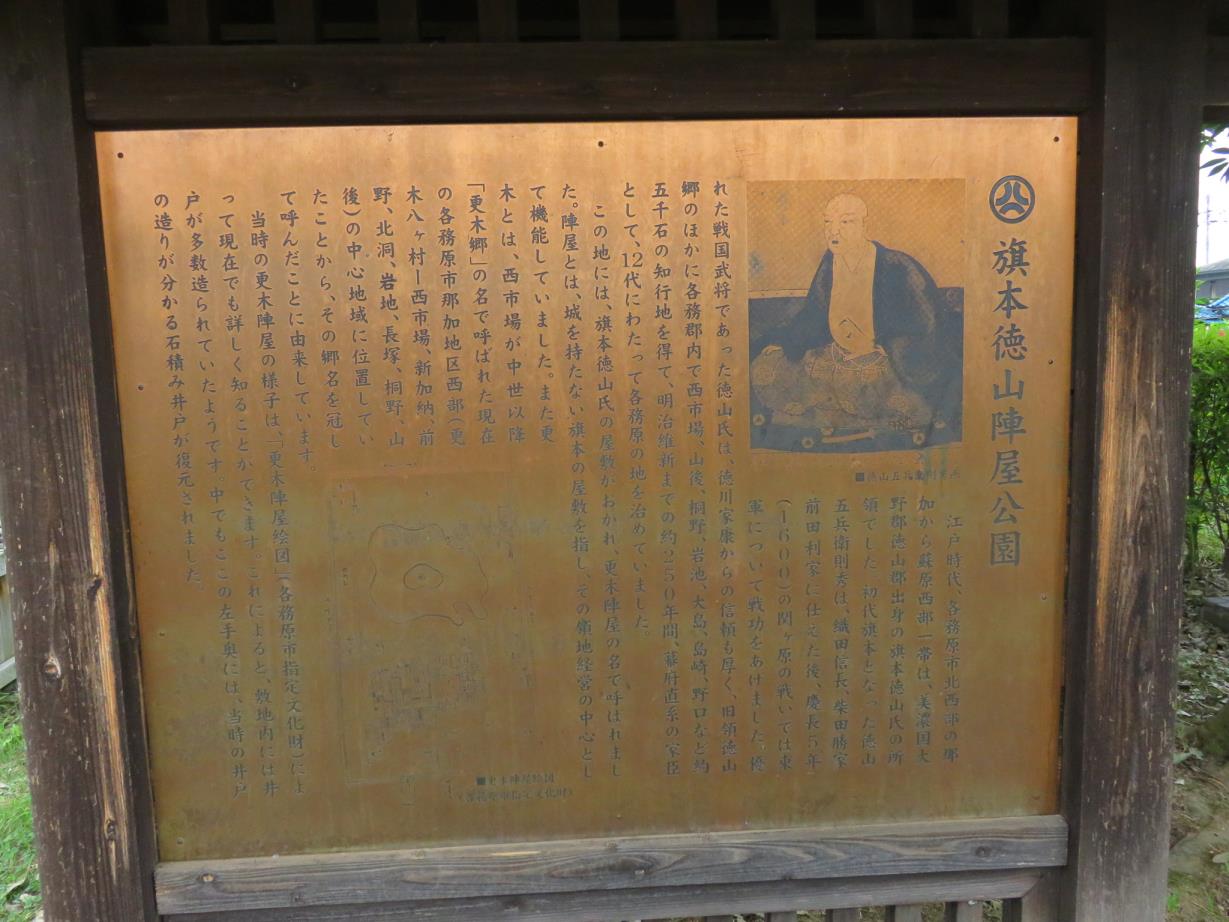 旗本徳山陣屋公園
江戸時代、各務原市北西部の那
加から蘇原西部一帯は、美濃国大
野郡徳山郡出身の旗本徳山氏の所
領でした。初代旗本となった徳山
五兵衛則秀は、織田信長、柴田勝家
前田利家に仕えた後、慶長5年
(1600)の関ヶ原の戦いでは東
軍について戦功をあげました。優
れた戦国武将であった徳山氏は、徳川家康からの信頼も厚く、旧領徳山
郷のほかに各務郡内で西市場、山後、桐野、岩池、大島、島崎、野口など約
五千石の知行地を得て、明治維新までの約250年間、幕府直系の家臣
として、12代にわたって各務原の地を治めていました。
この地には、旗本徳山氏の屋敷がおかれ、更木陣屋の名で呼ばれまし
た。陣屋とは、城を持たない旗本の屋敷を指し、その領地経営の中心とし
て機能していました。また更
木とは、西市場が中世以降
「更木郷」の名で呼ばれた現在
の各務原市那加地区西部(更
木八ヶ村ー西市場、新加納、前
野、北洞、岩地、長塚、桐野、山
後)の中心地域に位置してい
たことから、その郷名を冠し
て呼んだことに由来しています。
当時の更木陣屋の様子は、「更木陣屋絵図」(各務原市指定文化財)によ
って現在でも詳しく知ることができます。これによると、敷地内には井
戸が多数造られていたようです。中でもここの左手奥には、当時の井戸
の造りが分かる石積み井戸が復元されました。
■更木陣屋絵図
(各務原市指定文化財)